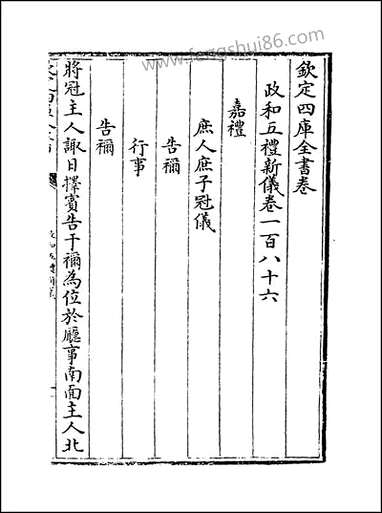 www.fengshui86.com
欽定四庫全書卷
政和五禮新儀卷一百八十六
嘉禮
庶人庶子冠儀
告禰
行事
告禰
將冠主人諏日擇賓告于禰為位於廳事南面主人北